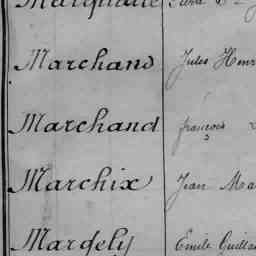 Marchand Jules Henri
Marchand françois
Marchix Jean Ma
Margely Emile Guilla